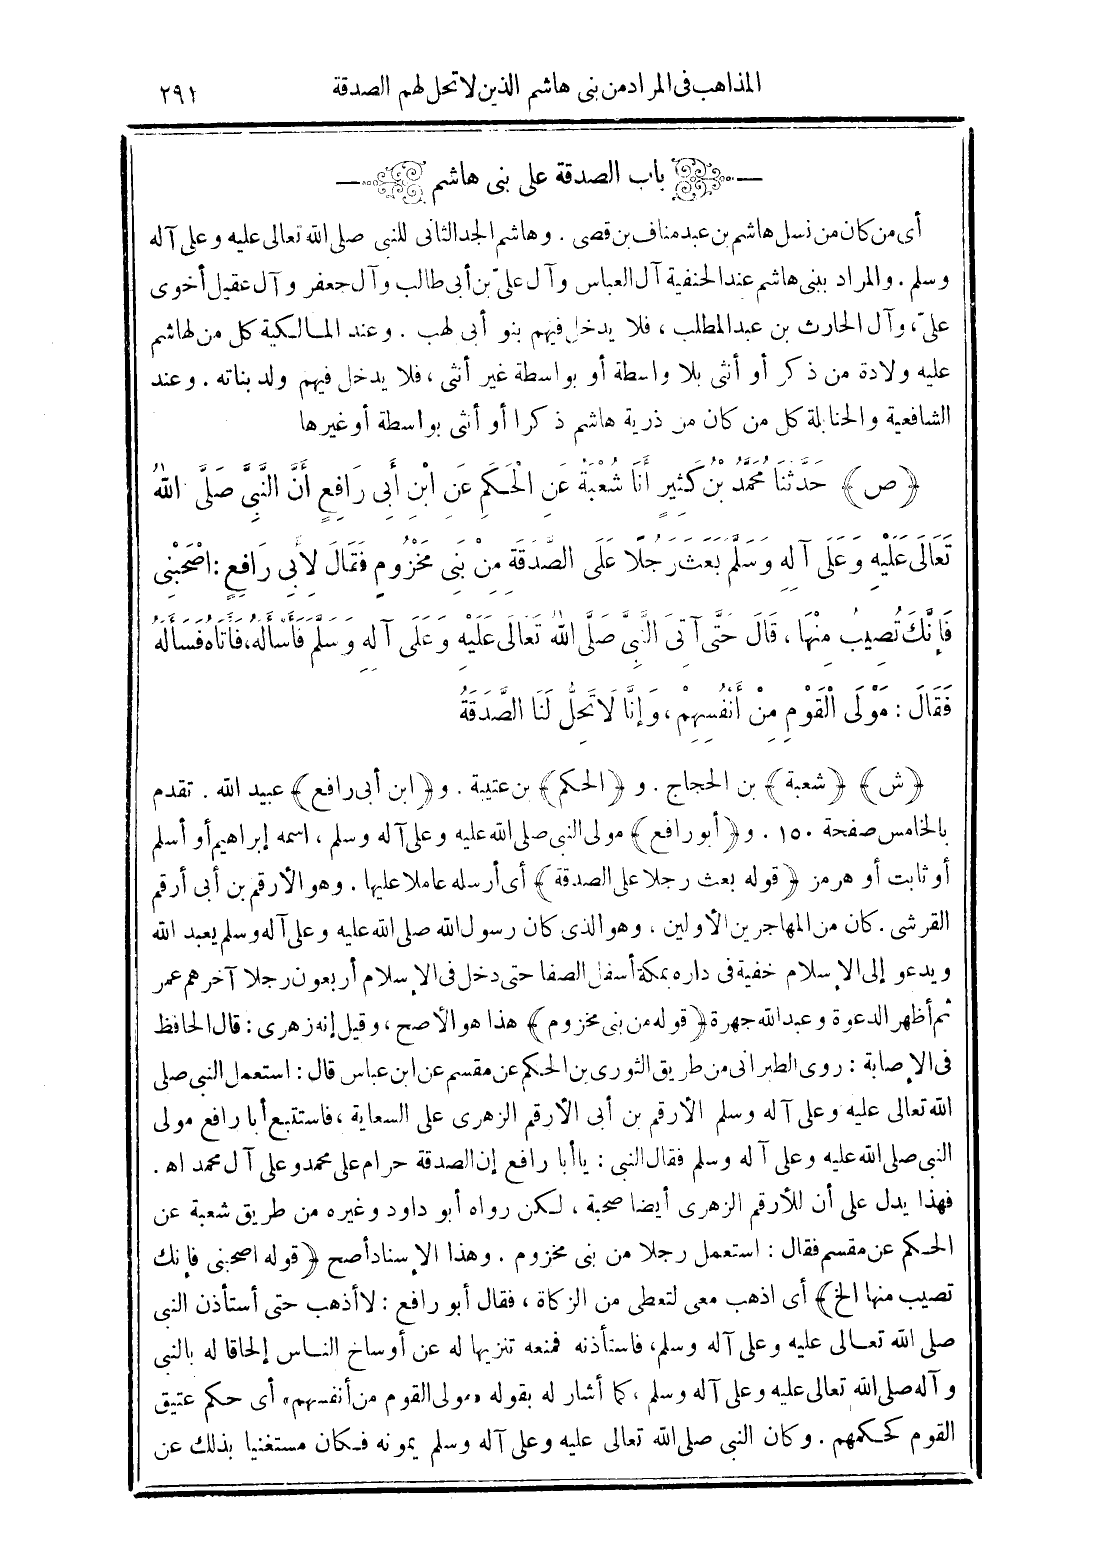 المذاهب فى المراد من بنى هاشم الذين لا تحل لهم الصدقة ٢٩١
باب الصدقة على بنى هاشم
أى من كان من نسل هاشم بن عبد مناف بن قصى . وهاشم الجد الثانى للنبى صلى الله تعالى عليه وعلى آله
وسلم . والمراد ببنى هاشم عند الحنفية آل العباس وآل علىّ بن أبى طالب وآل جعفر وآل عقيل أخوى
علىّ ، وآل الحارث بن عبد المطلب ، فلا يدخل فيهم بنو أبى لهب . وعند المالكية كل من لهاشم
عليه ولادة من ذكر أو أنثى بلا واسطة أو بواسطة غير أنثى ، فلا يدخل فيهم ولد بناته . وعند
الشافعية والحنابلة كل من كان من ذرية هاشم ذكرا أو أنثى بواسطة أو غيرها
﴿ص﴾ حَدَّثَنَا مُحَمَّدُ بْنُ كَثِيرٍ أَنَا شُعْبَةُ عَنِ الْحَكَمِ عَنِ ابْنِ أَبِى رَافِعٍ أَنَّ النَّبِىَّ صَلَّى اللهُ
تَعَالَى عَلَيْهِ وَعَلَى آلِهِ وَسَلَّمَ بَعَثَ رَجُلًا عَلَى الصَّدَقَةِ مِنْ بَنِى مَخْزُومٍ فَقَالَ لِأَبِى رَافِعٍ : اصْحَبْنِى
فَإِنَّكَ تُصِيبُ مِنْهَا ، قَالَ حَتَّى آتِىَ النَّبِىَّ صَلَّى اللهُ تَعَالَى عَلَيْهِ وَعَلَى آلِهِ وَسَلَّمَ فَأَسْأَلَهُ ، فَأَتَاهُ فَسَأَلَهُ
فَقَالَ : مَوْلَى الْقَوْمِ مِنْ أَنْفُسِهِمْ ، وَإِنَّا لَا تَحِلُّ لَنَا الصَّدَقَةُ
﴿ش﴾ ﴿شعبة﴾ بن الحجاج . و ﴿الحكم﴾ بن عتيبة . و﴿ابن أبى رافع﴾ عبيد الله . تقدم
بالخامس صفحة ١٥٠ . و﴿أبو رافع﴾ مولى النبى صلى الله عليه وعلى آله وسلم ، اسمه إبراهيم أو أسلم
أو ثابت أو هرمز ﴿قوله بعث رجلا على الصدقة﴾ أى أرسله عاملا عليها . وهو الأرقم بن أبى أرقم
القرشى . كان من المهاجرين الأولين ، وهو الذى كان رسول الله صلى الله عليه وعلى آله وسلم يعبد الله
ويدعو إلى الإسلام خفية فى داره بمكة أسفل الصفا حتى دخل فى الإسلام أربعون رجلا آخرهم عمر
ثم أظهر الدعوة وعبد الله جهرة ﴿قوله من بنى مخزوم﴾ هذا هو الأصح ، وقيل إنه زهرى : قال الحافظ
فى الإصابة : روى الطبرانى من طريق الثورى بن الحكم عن مقسم عن ابن عباس قال : استعمل النبى صلى
الله تعالى عليه وعلى آله وسلم الأرقم بن أبى الأرقم الزهرى على السعاية ، فاستتبع أبا رافع مولى
النبى صلى الله عليه وعلى آله وسلم فقال النبى : يا أبا رافع إن الصدقة حرام على محمد وعلى آل محمد اه .
فهذا يدل على أن للأرقم الزهرى أيضا صحبة ، لكن رواه أبو داود وغيره من طريق شعبة عن
الحكم عن مقسم فقال : استعمل رجلا من بنى مخزوم . وهذا الإسناد أصح ﴿قوله اصحبنى فإنك
تصيب منها الخ﴾ أى اذهب معى لتعطى من الزكاة ، فقال أبو رافع : لا أذهب حتى أستأذن النبى
صلى الله تعالى عليه وعلى آله وسلم ، فاستأذنه فمنعه تنزيها له عن أوساخ الناس إلحاقا له بالنبى
وآله صلى الله تعالى عليه وعلى آله وسلم ، كما أشار له بقوله «مولى القوم من أنفسهم» أى حكم عتيق
القوم كحكمهم . وكان النبى صلى الله تعالى عليه وعلى آله وسلم يمونه فكان مستغنيا بذلك عن